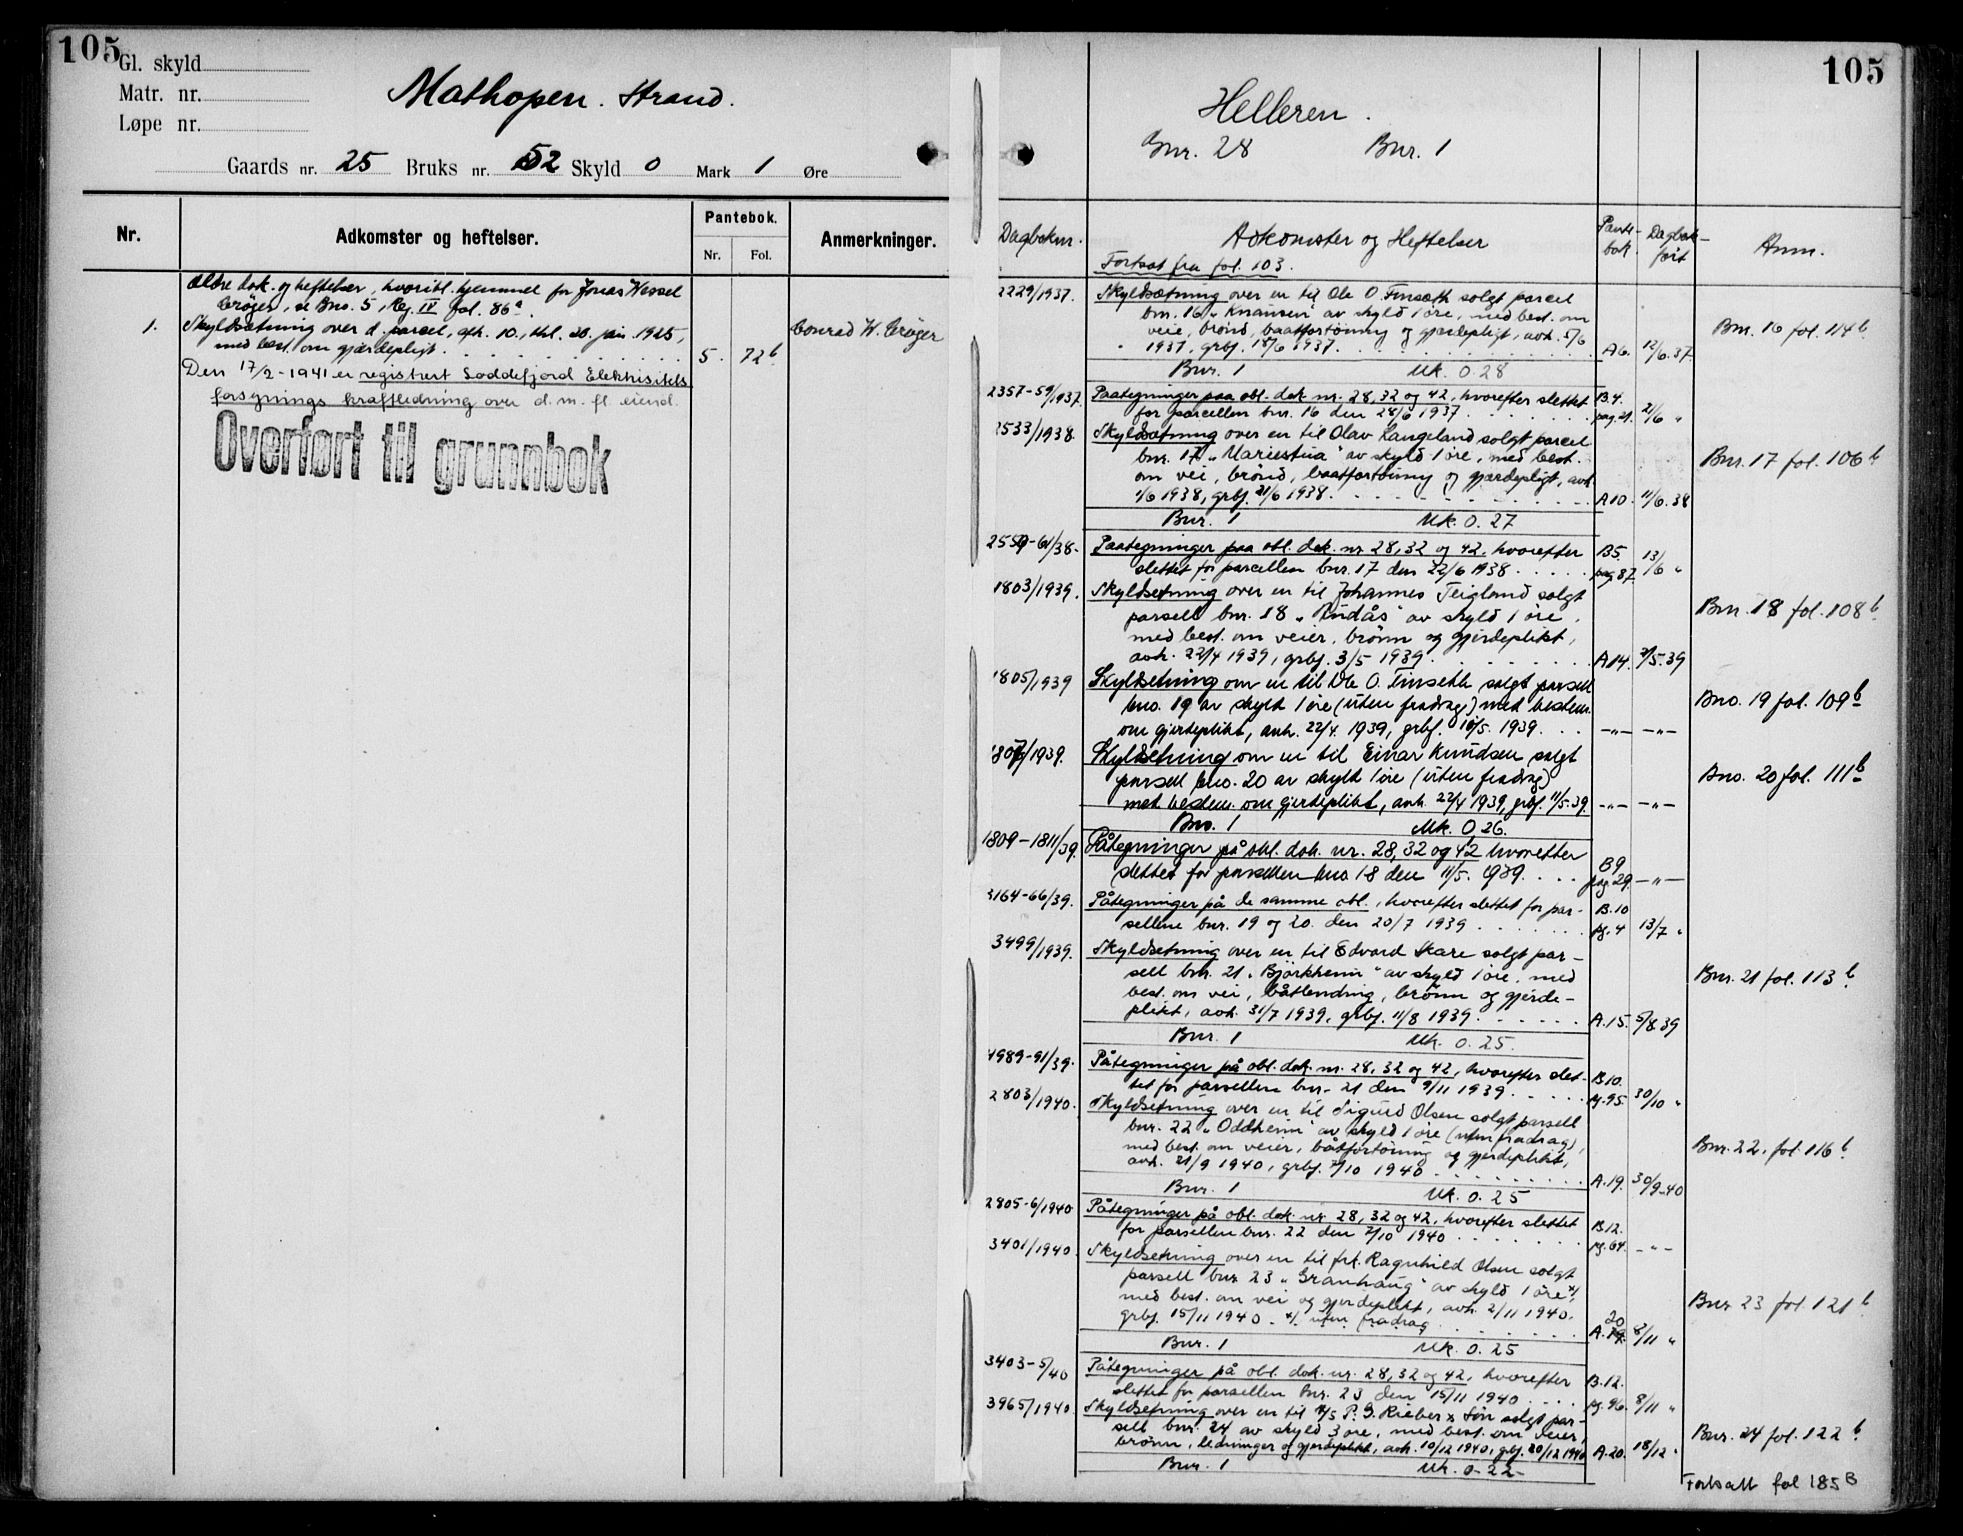 105
Gl. skyld
Matr. nr.
Løpe nr.
Mathopen. Strand.
Gaards nr. 25 Bruks nr. 52 Skyld 0 Mark 1 Øre
Nr.
Adkomster og heftelser.
Pantebok.
Nr. Fol.
Anmerkninger.
Ældre dok. og heftelser, hvoribl. hjemmel for Jonas Wessel
Crøger, se Bno. 5, Reg. IV fol. 86a.
1. Skyldsetning over d. parcel, afh. 10., thl. 20. jan. 1925,
med best. om gjærdepligt. 5. 72b
Conrad W. Crøger
Den 17/2-1941 er registrert Loddefjord Elektrisitets
forsynings kraftledning over d. m. fl. eiend.
Overført til grunnbok
105
Helleren.
Gnr. 28 Bnr. 1
Dagboknr.
Adkomster og Heftelser
Pante-
bok.
Dagbok-
ført
Anm.
Fortsat fra fol. 103.
2229/1937. Skyldsætning over en til Ole O. Tinseth solgt parcel
bnr. 16 „Knausen“ av skyld 1 øre, med best. om
veie, brønd, baatfortøining og gjærdepligt, avh. 5/6
1937, grbj. 18/6 1937. A6. 12/6.37
Bnr. 16 fol. 114b
Bnr. 1 Mk. 0.28
2357-59/1937. Paategninger paa obl. dok. nr. 28, 32 og 42, hvorefter slettet
for parcellen bnr. 16 den 28/6 1937. B4. pag. 21. 21/6 "
2533/1938. Skyldsætning over en til Olav Langeland solgt parcel
bnr. 17 „Mariestua“ av skyld 1 øre, med best.
om vei, brønd, baatfortøining og gjærdepligt, avh.
1/6 1938, grbj. 21/6 1938. A10. 11/6.38
Bnr. 17 fol. 106b
Bnr. 1 Mk. 0.27
2559-61/38. Paategninger paa obl. dok. nr. 28, 32 og 42, hvorefter
slettet for parcellen bnr. 17 den 22/6 1938. B5. pag 87 13/6 "
1803/1939. Skyldsetning over en til Johannes Teigland solgt
parsell bnr. 18 „Lindås“ av skyld 1 øre,
med best. om veier, brønn og gjerdeplikt,
avh. 22/4 1939, grbj. 3/5 1939. A14. 2/5.39
Bnr. 18 fol. 108b
1805/1939 Skyldsetning om en til Ole O. Tinseth solgt parsell
bno. 19 av skyld 1 øre (uten fradrag) med bestem.
om gjerdeplikt, avh. 22/4. 1939, grbj. 11/5. 1939. —"— —"—
Bno. 19 fol. 109b
1807/1939. Skyldsetning om en til Einar Knudsen solgt
parsell bno. 20 av skyld 1 øre (uten fradrag)
med bestem. om gjerdeplikt, avh. 22/4 1939, grbj. 11/5.39. —"— —"—
Bno. 20 fol. 111b
Bno. 1 Mk. 0.26.
1809-1811/39. Påtegninger på obl. dok. nr. 28, 32 og 42 hvoretter
slettet for parsellen bno. 18 den 11/5. 1939. B9 pag. 29. —"—
3164-66/39. Påtegninger på de samme obl., hvorefter slettet for par-
sellene bnr. 19 og 20. den 20/7 1939 B.10 pg. 4 13/7 "
3499/1939. Skyldsetning over en til Edvard Skare solgt par-
sell bnr. 21 „Björkheim“ av skyld 1 øre, med
best. om vei, båtlending, brønn og gjerde-
plikt, avh. 31/7 1939, grbj. 11/8 1939. A.15. 5/8 39
Bnr. 21 fol. 113b
Bnr. 1 Mk. 0.25.
4989-91/39. Påtegninger på obl. dok. nr. 28, 32 og 42, hvorefter slet-
tet for parsellen bnr. 21 den 9/11 1939. B10. pg. 95. 30/10 "
2803/1940. Skyldsetning over en til Sigurd Olsen solgt parsell
bnr. 22 „Oddheim“ av skyld 1 øre (uten fradrag),
med best. om veier, båtfortøining og gjerdeplikt,
avh. 21/9 1940, grbj. 7/10 1940. A.19. 30/9-40
Bnr. 22. fol. 116b
Bnr. 1 Mk. 0.25
2805-6/1940 Påtegninger på obl. dok. nr. 28, 32 og 42, hvorefter slettet
for parsellen bnr. 22 den 7/10 1940. B12. pg. 64. —"—
3401/1940. Skyldsetning over en til frk. Ragnhild Olsen solgt
parsell bnr. 23 „Granhaug“ av skyld 1 øre x/,
med best. om vei og gjerdeplikt, avh. 2/11 1940,
grbj. 15/11 1940. x/. uten fradrag A.20 8/11 "
Bnr 23 fol. 121b
Bnr. 1 Mk. 0.25
3403-5/40 Påtegninger på obl. dok. nr. 28, 32 og 42, hvorefter
slettet for parsellen bnr. 23 den 15/11 1940 B.12. pg. 96. 8/11 "
3965/1940 Skyldsetning over en til A/S P. G. Rieber & Søn solgt par-
sell bnr. 24 av skyld 3 øre, med best. om veier,
brønn, ledninger og gjerdeplikt, avh. 10/12 1940, grbj. 20/12 1940 A.20. 18/12 "
Bnr. 24 fol. 122b
Bnr. 1 Mk. 0-22-
Fortsatt fol 185B